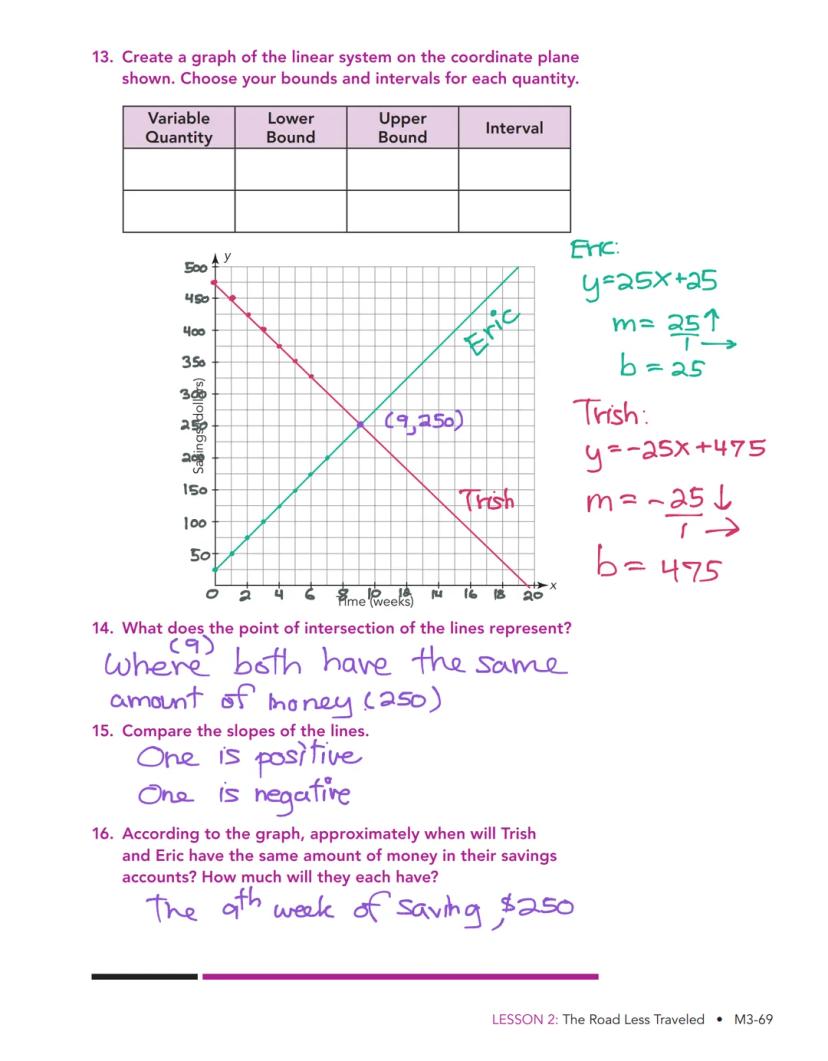 13. Create a graph of the linear system on the coordinate plane
shown. Choose your bounds and intervals for each quantity.
Variable Quantity Lower Bound Upper Bound Interval
y
500
450
400
350
300
250
200
150
100
50
Savings (dollars)
Eric
(9,250)
Trish
0 2 4 6 8 10 12 14 16 18 20
x
Time (weeks)
Eric:
y=25x+25
m= 25↑
1 →
b = 25
Trish:
y=-25x+475
m = -25↓
1 →
b= 475
14. What does the point of intersection of the lines represent?
(9)
Where both have the same
amount of money (250)
15. Compare the slopes of the lines.
One is positive
One is negative
16. According to the graph, approximately when will Trish
and Eric have the same amount of money in their savings
accounts? How much will they each have?
The 9th week of saving, $250
LESSON 2: The Road Less Traveled • M3-69